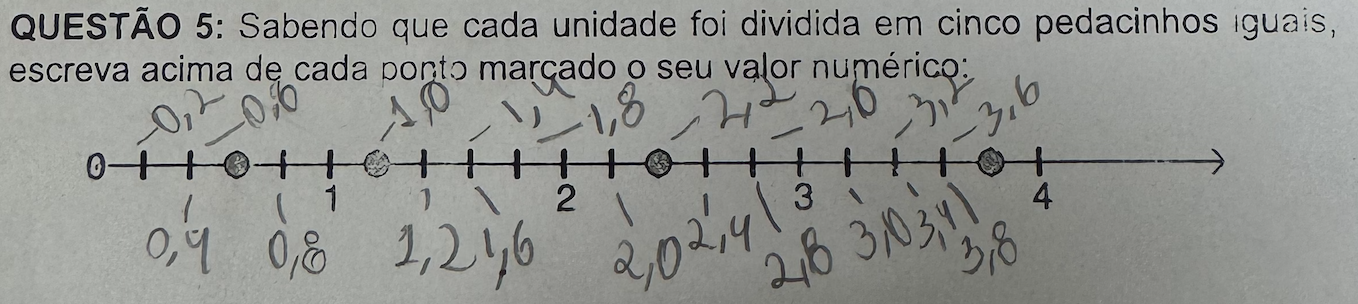 QUESTÃO 5: Sabendo que cada unidade foi dividida em cinco pedacinhos iguais,
escreva acima de cada ponto marcado o seu valor numérico:
0,2 0,6 1,0 1,4 1,8 2,2 2,6 3,2 3,6
0 1 2 3 4
0,4 0,8 1,2 1,6 2,0 2,4 2,8 3,0 3,4 3,8